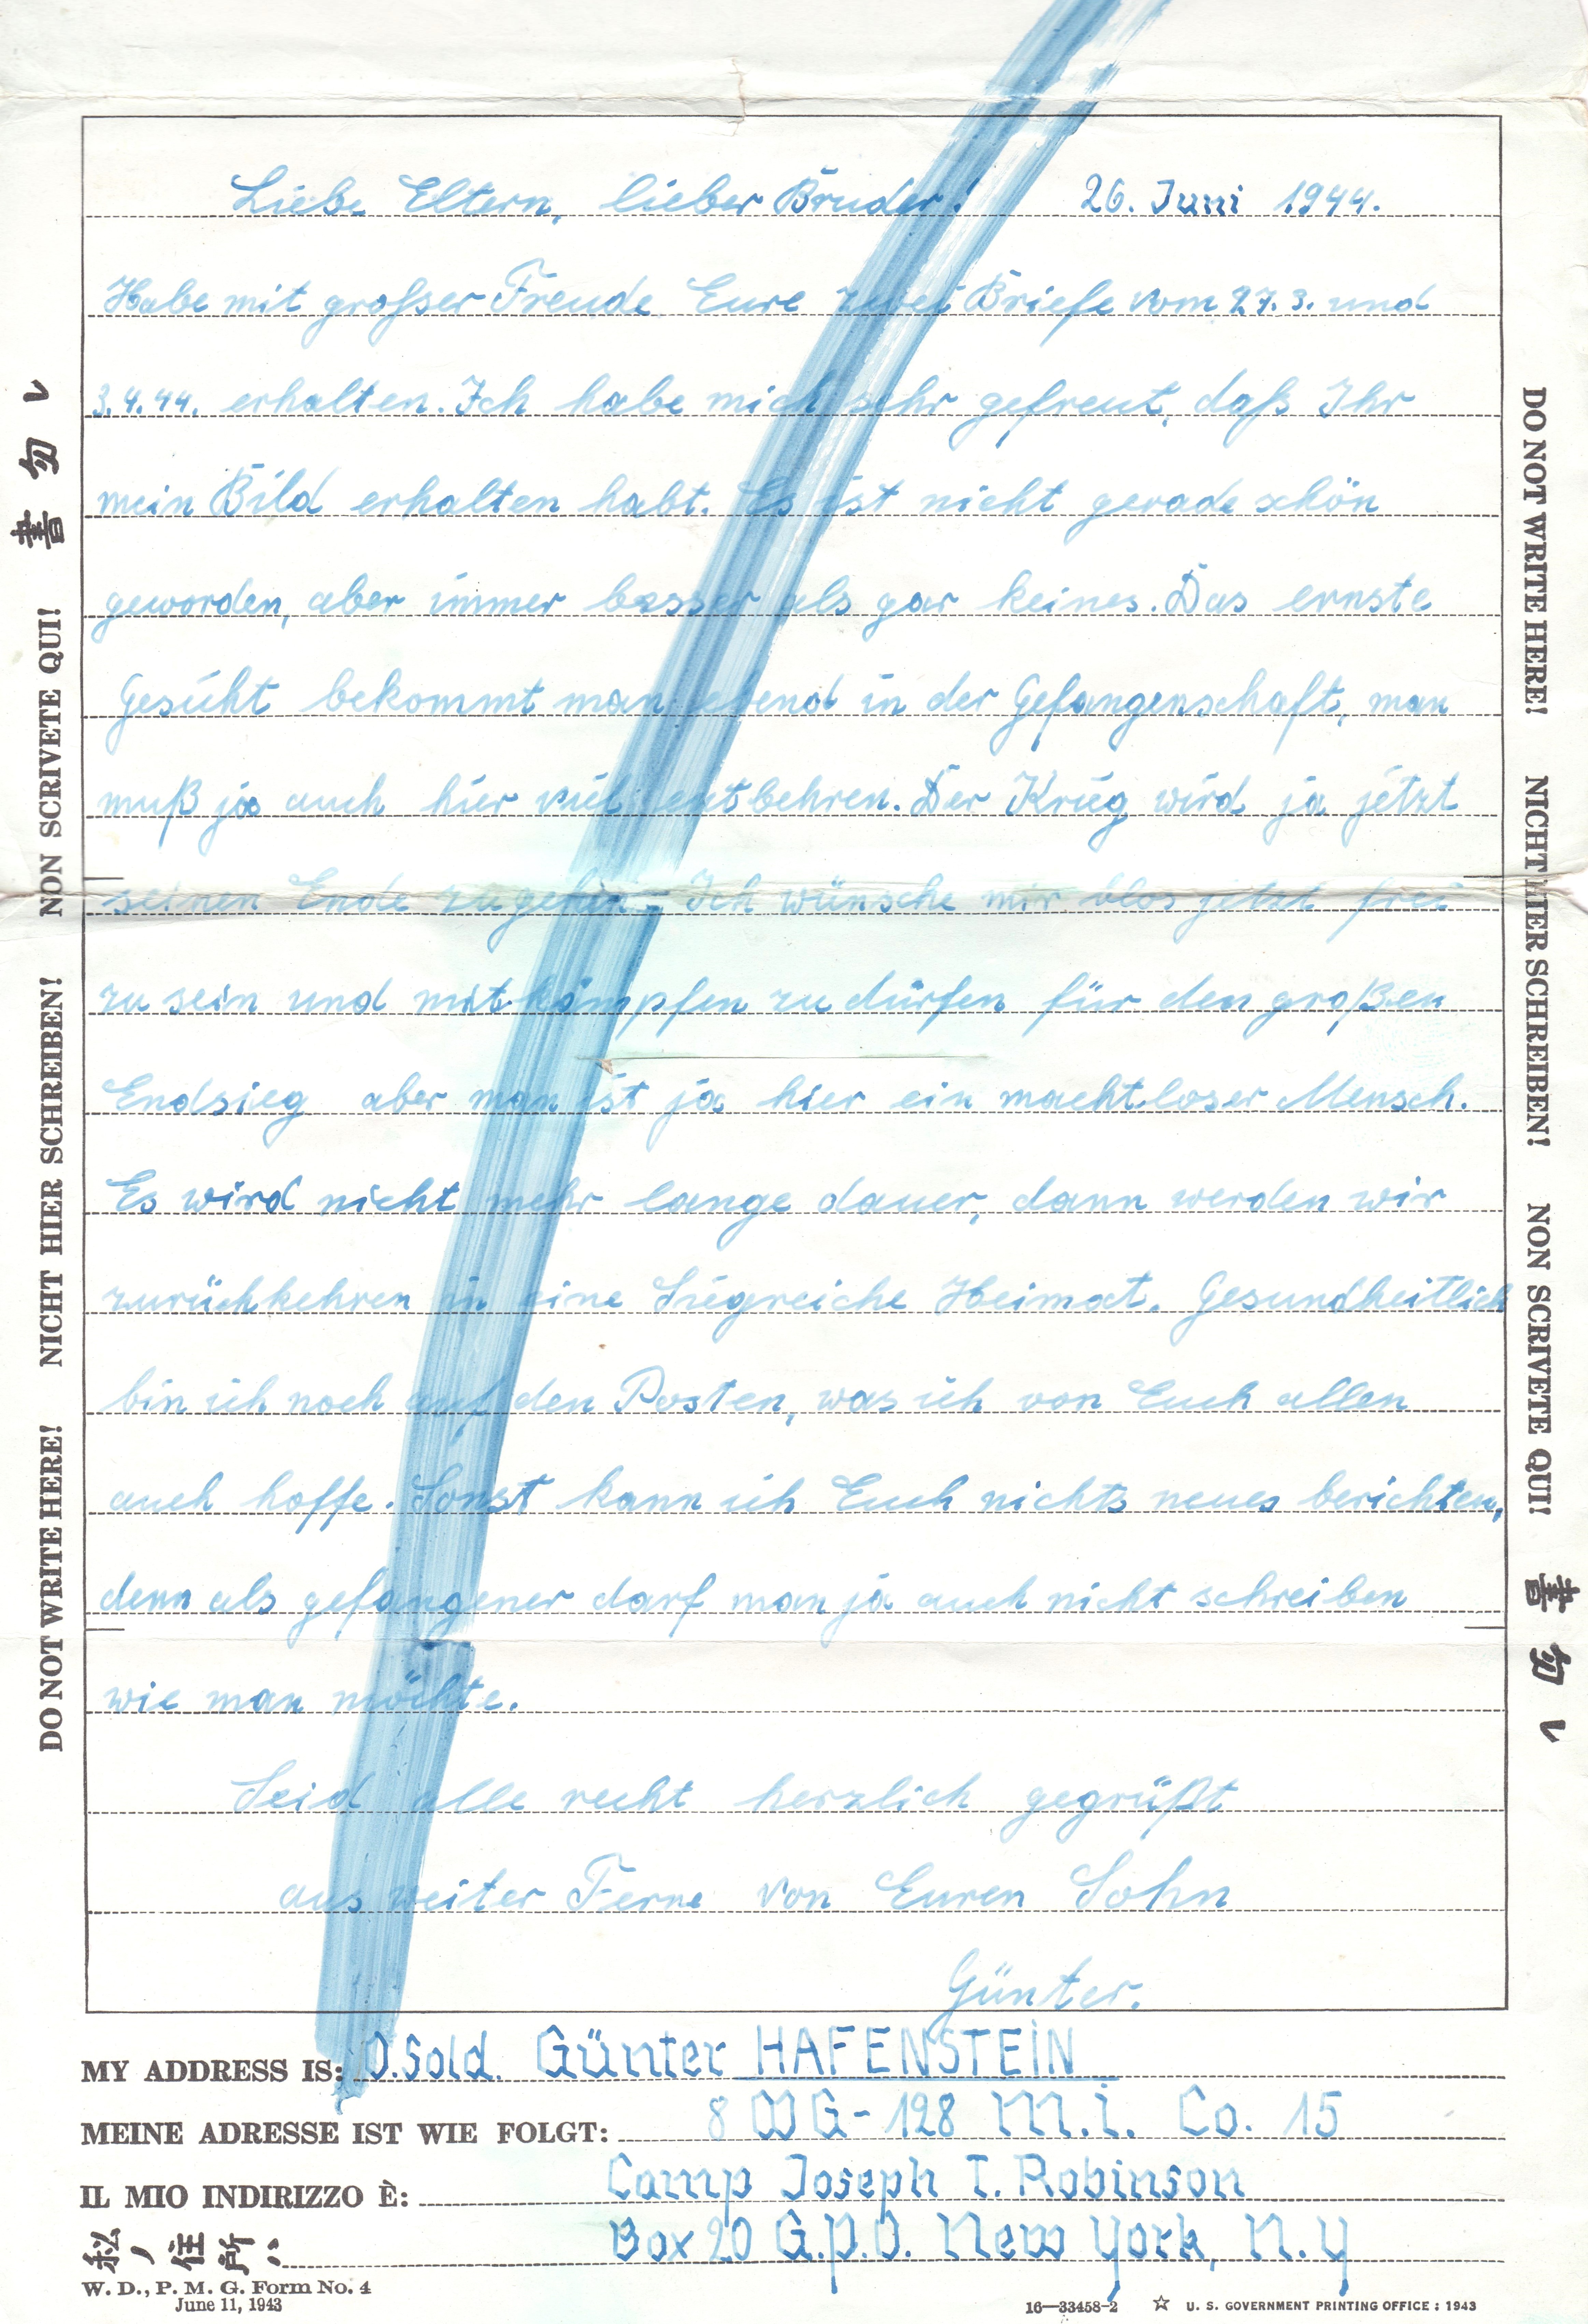 Liebe Eltern, lieber Bruder! 26. Juni 1944.
Habe mit grosser Freude Eure zwei Briefe vom 27.3. und
3.4.44. erhalten. Ich habe mich sehr gefreut, daß Ihr
mein Bild erhalten habt. Es ist nicht gerade schön
geworden, aber immer besser als gar keines. Das ernste
Gesicht bekommt man ebend in der Gefangenschaft, man
muß ja auch hier viel entbehren. Der Krieg wird ja jetzt
seinen Ende zugehen. Ich wünsche mir blos jetzt frei
zu sein und mitkämpfen zu dürfen für den großen
Endsieg aber man ist ja hier ein machtloser Mensch.
Es wird nicht mehr lange dauer, dann werden wir
zurückkehren in eine Siegreiche Heimat. Gesundheitlich
bin ich noch auf den Posten, was ich von Euch allen
auch hoffe. Sonst kann ich Euch nichts neues berichten,
denn als gefangener darf man ja auch nicht schreiben
wie man möchte.
Seid alle recht herzlich gegrüßt
aus weiter Ferne von Euren Sohn
Günter.
MY ADDRESS IS: O.Sold. Günter HAFENSTEIN
MEINE ADRESSE IST WIE FOLGT: 8 WG-128 M.i. Co. 15
IL MIO INDIRIZZO È: Camp Joseph T. Robinson
私ノ住所: Box 20 G.P.O. New York, N.Y
W. D., P. M. G. Form No. 4
June 11, 1943
16—33458-2 ☆ U. S. GOVERNMENT PRINTING OFFICE : 1943
DO NOT WRITE HERE! NICHT HIER SCHREIBEN! NON SCRIVETE QUI! 書勿レ
DO NOT WRITE HERE! NICHT HIER SCHREIBEN! NON SCRIVETE QUI! 書勿レ